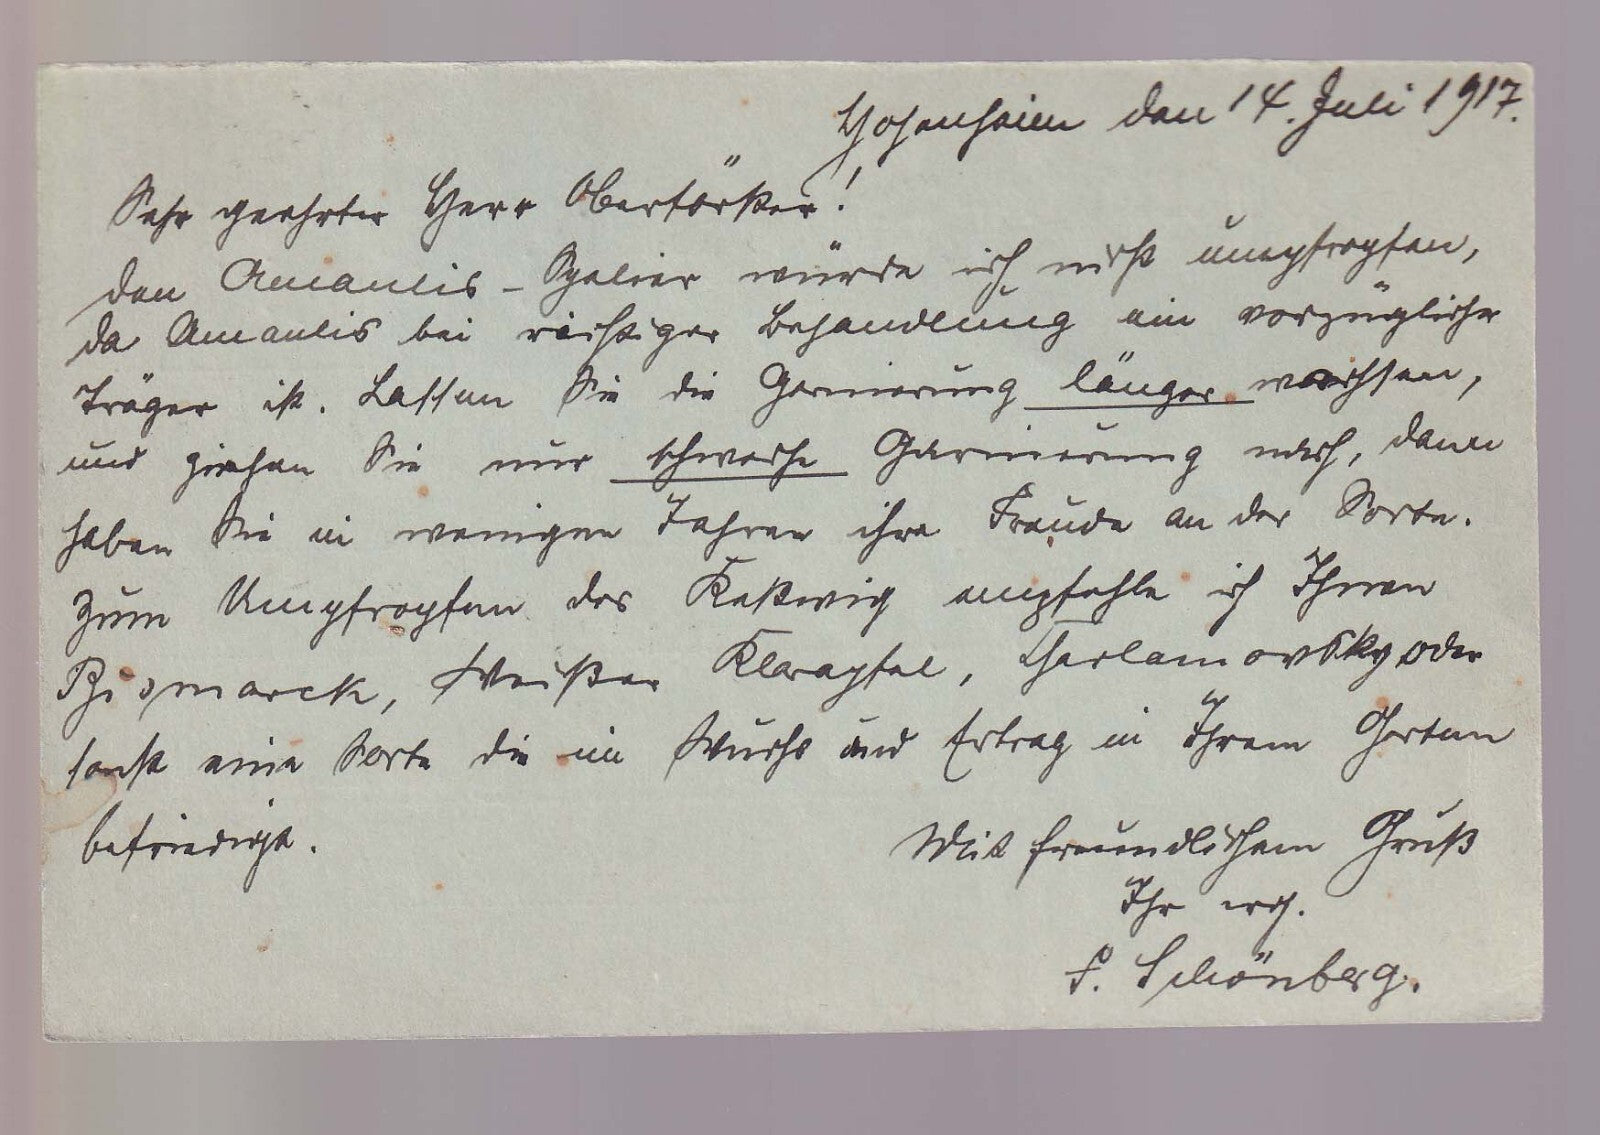 Hohenheim den 14. Juli 1917.
Sehr geehrter Herr Oberförster!
den Amanlis - Spalier würde ich nicht umpfropfen,
da Amanlis bei richtiger Behandlung ein vorzüglicher
Träger ist. Lassen Sie die Garnierung länger wachsen,
und ziehen Sie nur schwache Garnierung nach, dann
haben Sie in wenigen Jahren ihre Freude an der Sorte.
Zum Umpfropfen des empfehle ich Ihnen
Bismarck, Weißer Klarapfel, Charlamovsky oder
sonst eine Sorte die im Wuchs und Ertrag in Ihrem Garten
befriedigt.
Mit freundlichem Gruß
Ihr erg.
F. Schönberg.